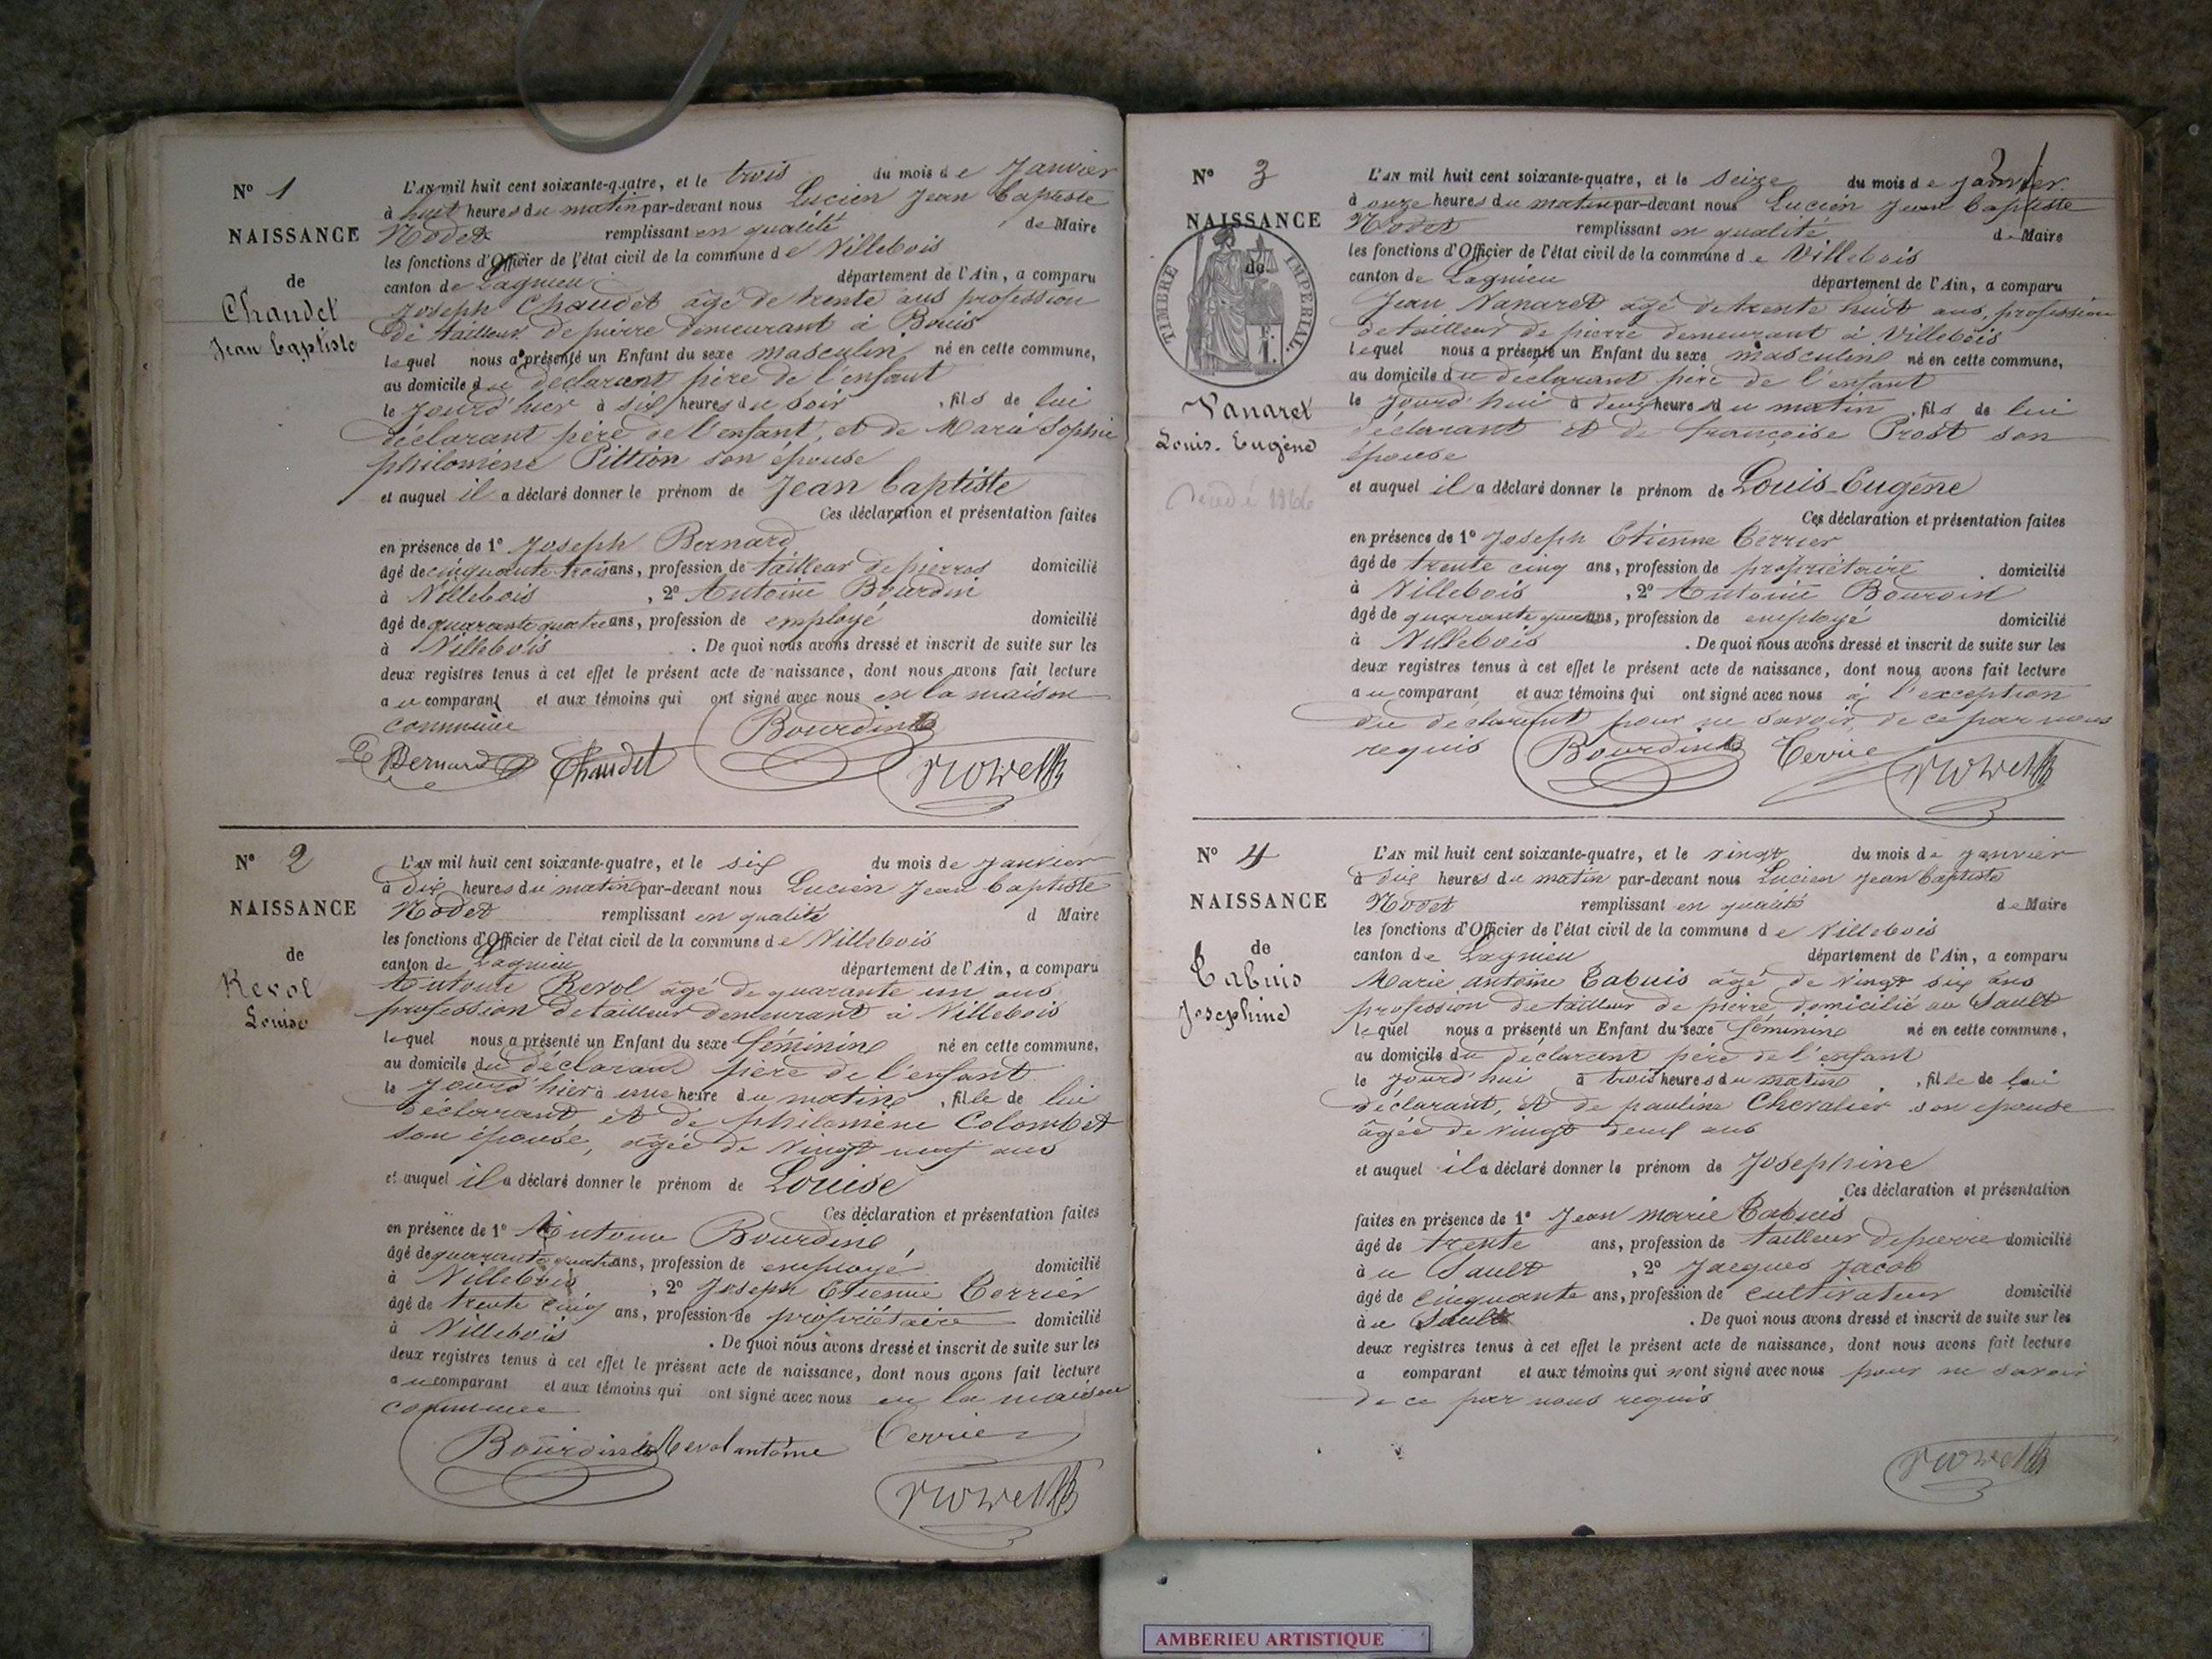 N° 1
NAISSANCE
de
Chaudet
Jean Baptiste
L'AN mil huit cent soixante-quatre, et le trois du mois de Janvier
à huit heures du matin par-devant nous Lucien Jean Baptiste
Nodet remplissant en qualité de Maire
les fonctions d'Officier de l'état civil de la commune de Villebois
canton de Lagnieu département de l'Ain, a comparu
Joseph Chaudet âgé de trente ans profession
de tailleur de pierre demeurant à Bouis
lequel nous a présenté un Enfant du sexe masculin né en cette commune,
au domicile du déclarant père de l'enfant
le jourd'hier à six heures du soir, fils de lui
déclarant père de l'enfant, et de Marie Sophie
philomène Pittion son épouse
et auquel il a déclaré donner le prénom de Jean Baptiste
Ces déclaration et présentation faites
en présence de 1° Joseph Bernard
âgé de cinquante trois ans, profession de tailleur de pierres domicilié
à Villebois, 2° Antoine Bourdin
âgé de quarante quatre ans, profession de employé domicilié
à Villebois. De quoi nous avons dressé et inscrit de suite sur les
deux registres tenus à cet effet le présent acte de naissance, dont nous avons fait lecture
au comparant et aux témoins qui ont signé avec nous en la maison
commune
Bourdin
Bernard Chaudet
N° 2
NAISSANCE
de
Revol
Louise
L'AN mil huit cent soixante-quatre, et le six du mois de janvier
à dix heures du matin par-devant nous Lucien Jean Baptiste
Nodet remplissant en qualité d Maire
les fonctions d'Officier de l'état civil de la commune de Villebois
canton de Lagnieu département de l'Ain, a comparu
Antoine Revol âgé de quarante un ans
profession de tailleur demeurant à Villebois
lequel nous a présenté un Enfant du sexe féminin né en cette commune,
au domicile du déclarant père de l'enfant
le jourd'hier à une heure du matin, fille de lui
déclarant, et de philomène Colombet
son épouse, âgée de vingt neuf ans
et auquel il a déclaré donner le prénom de Louise
Ces déclaration et présentation faites
en présence de 1° Antoine Bourdin
âgé de quarante quatre ans, profession de employé domicilié
à Villebois, 2° Joseph Etienne Terrier
âgé de trente cinq ans, profession de propriétaire domicilié
à Villebois. De quoi nous avons dressé et inscrit de suite sur les
deux registres tenus à cet effet le présent acte de naissance, dont nous avons fait lecture
au comparant et aux témoins qui ont signé avec nous en la maison
commune
Bourdin Revol antoine Terrier
N° 3
NAISSANCE
de
TIMBRE IMPERIAL
Vanaret
Louis-Eugène
L'AN mil huit cent soixante-quatre, et le seize du mois de janvier
à onze heures du matin par-devant nous Lucien Jean Baptiste
Nodet remplissant en qualité de Maire
les fonctions d'Officier de l'état civil de la commune de Villebois
canton de Lagnieu département de l'Ain, a comparu
Jean Vanaret âgé de trente huit ans, profession
de tailleur de pierre demeurant à Villebois
lequel nous a présenté un Enfant du sexe masculin né en cette commune,
au domicile du déclarant père de l'enfant
le jourd'hui à deux heures du matin, fils de lui
déclarant et de françoise Prost son
épouse
et auquel il a déclaré donner le prénom de Louis-Eugène
Ces déclaration et présentation faites
en présence de 1° Joseph Etienne Terrier
âgé de trente cinq ans, profession de propriétaire domicilié
à Villebois, 2° Antoine Bourdin
âgé de quarante quatre ans, profession de employé domicilié
à Villebois. De quoi nous avons dressé et inscrit de suite sur les
deux registres tenus à cet effet le présent acte de naissance, dont nous avons fait lecture
au comparant et aux témoins qui ont signé avec nous à l'exception
du déclarant pour ne savoir de ce par nous
requis Bourdin Terrier
N° 4
NAISSANCE
de
Tabuis
Josephine
L'AN mil huit cent soixante-quatre, et le vingt du mois de janvier
à dix heures du matin par-devant nous Lucien Jean Baptiste
Nodet remplissant en qualité de Maire
les fonctions d'Officier de l'état civil de la commune de Villebois
canton de Lagnieu département de l'Ain, a comparu
Marie antoine Tabuis âgé de vingt six ans
profession de tailleur de pierre domicilié au Sault
lequel nous a présenté un Enfant du sexe féminin né en cette commune,
au domicile du déclarant père de l'enfant
le jourd'hui à trois heures du matin, fille de lui
déclarant, et de pauline Chevalier son épouse
âgée de vingt deux ans
et auquel il a déclaré donner le prénom de Josephine
Ces déclaration et présentation
faites en présence de 1° Jean marie Tabuis
âgé de trente ans, profession de tailleur de pierre domicilié
au Sault, 2° Jacques Jacob
âgé de cinquante ans, profession de cultivateur domicilié
au Sault. De quoi nous avons dressé et inscrit de suite sur les
deux registres tenus à cet effet le présent acte de naissance, dont nous avons fait lecture
a comparant et aux témoins qui n'ont signé avec nous pour ne savoir
de ce par nous requis
AMBERIEU ARTISTIQUE